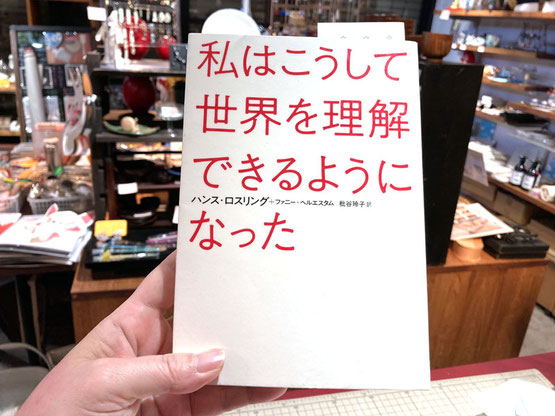 私はこうして
世界を理解
できるように
ハンス・ロスリング+ファニー・ヘルエスタム 枇谷玲子 訳
なった